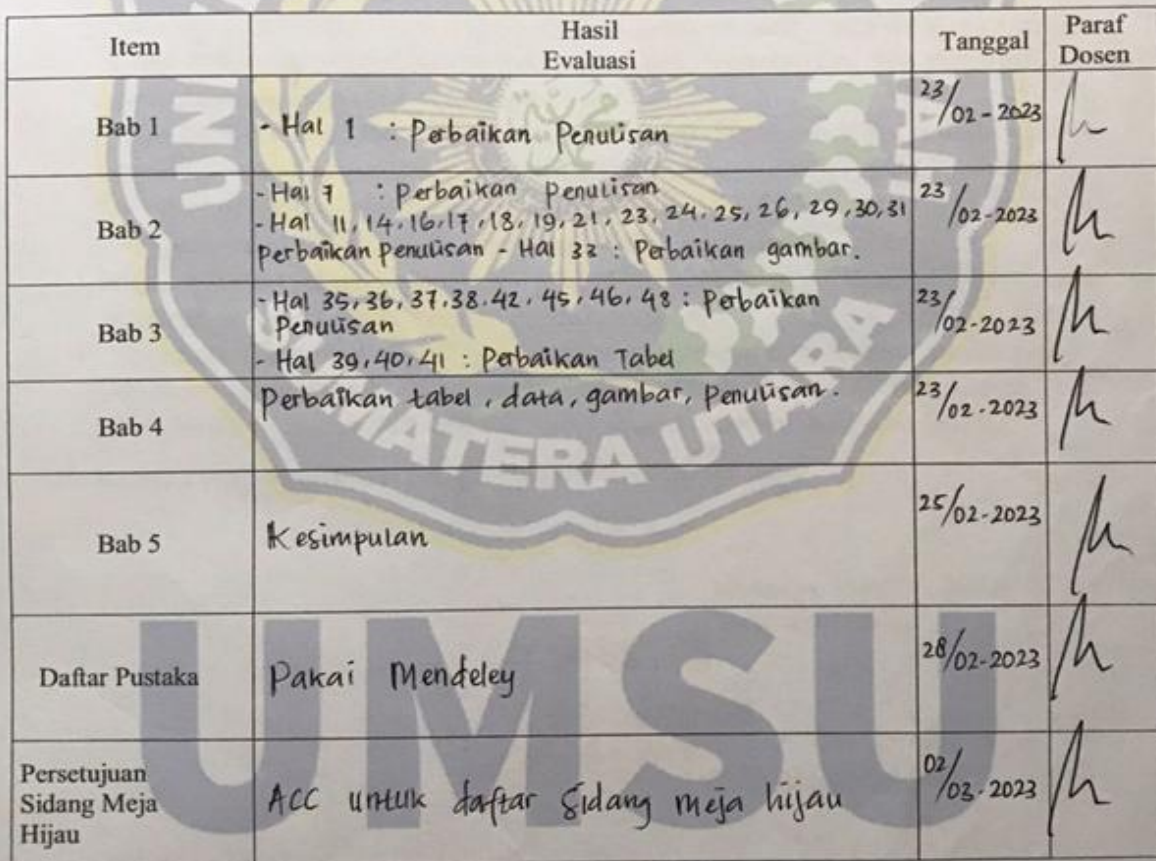 Item
Hasil
Evaluasi
Tanggal
Paraf
Dosen
Bab 1
- Hal 1 : Perbaikan Penulisan
23/02-2023
Bab 2
- Hal 7 : Perbaikan Penulisan
- Hal 11, 14, 16, 17, 18, 19, 21, 23, 24, 25, 26, 29, 30, 31
Perbaikan Penulisan - Hal 33 : Perbaikan gambar.
23/02-2023
Bab 3
- Hal 35, 36, 37, 38. 42, 45, 46, 48 : Perbaikan
Penulisan
- Hal 39, 40, 41 : Perbaikan Tabel
23/02-2023
Bab 4
Perbaikan tabel, data, gambar, Penulisan.
23/02-2023
Bab 5
Kesimpulan
25/02-2023
Daftar Pustaka
Pakai Mendeley
28/02-2023
Persetujuan
Sidang Meja
Hijau
ACC untuk daftar sidang meja hijau
02/03-2023
SUMATERA UTARA
UMSU